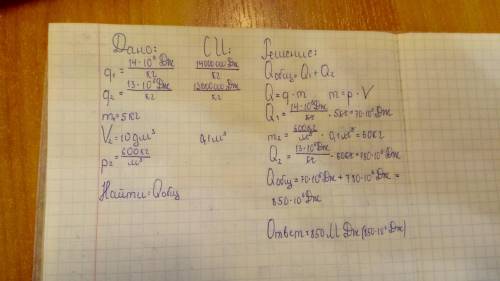 Дано:
q₁ = 14·10⁶ Дж/кг
q₂ = 13·10⁶ Дж/кг
m₁ = 5 кг
V₂ = 10 дм³
ρ₂ = 600 кг/м³
Найти: Qобщ
СИ:
14000000 Дж/кг
13000000 Дж/кг
0,1 м³
Решение:
Qобщ = Q₁ + Q₂
Q = q · m m = ρ · V
Q₁ = 14·10⁶ Дж/кг · 5кг = 70·10⁶ Дж
m₂ = 600кг/м³ · 0,1 м³ = 60кг
Q₂ = 13·10⁶ Дж/кг · 60кг = 780·10⁶ Дж
Qобщ = 70·10⁶ Дж + 780·10⁶ Дж =
850·10⁶ Дж
Ответ: 850 МДж (850·10⁶ Дж)